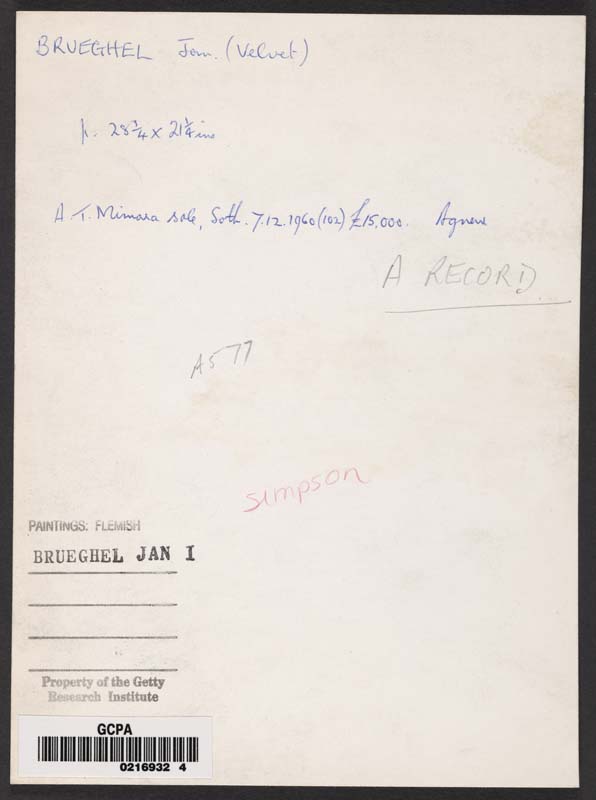 BRUEGHEL Jan. (Velvet)
p. 28 3/4 x 21 1/4 ins
A. T. Mimara sale, Soth. 7.12.1960 (102) £15,000. Agnew
A RECORD
A577
simpson
PAINTINGS: FLEMISH
BRUEGHEL JAN I
Property of the Getty
Research Institute
GCPA
0216932 4